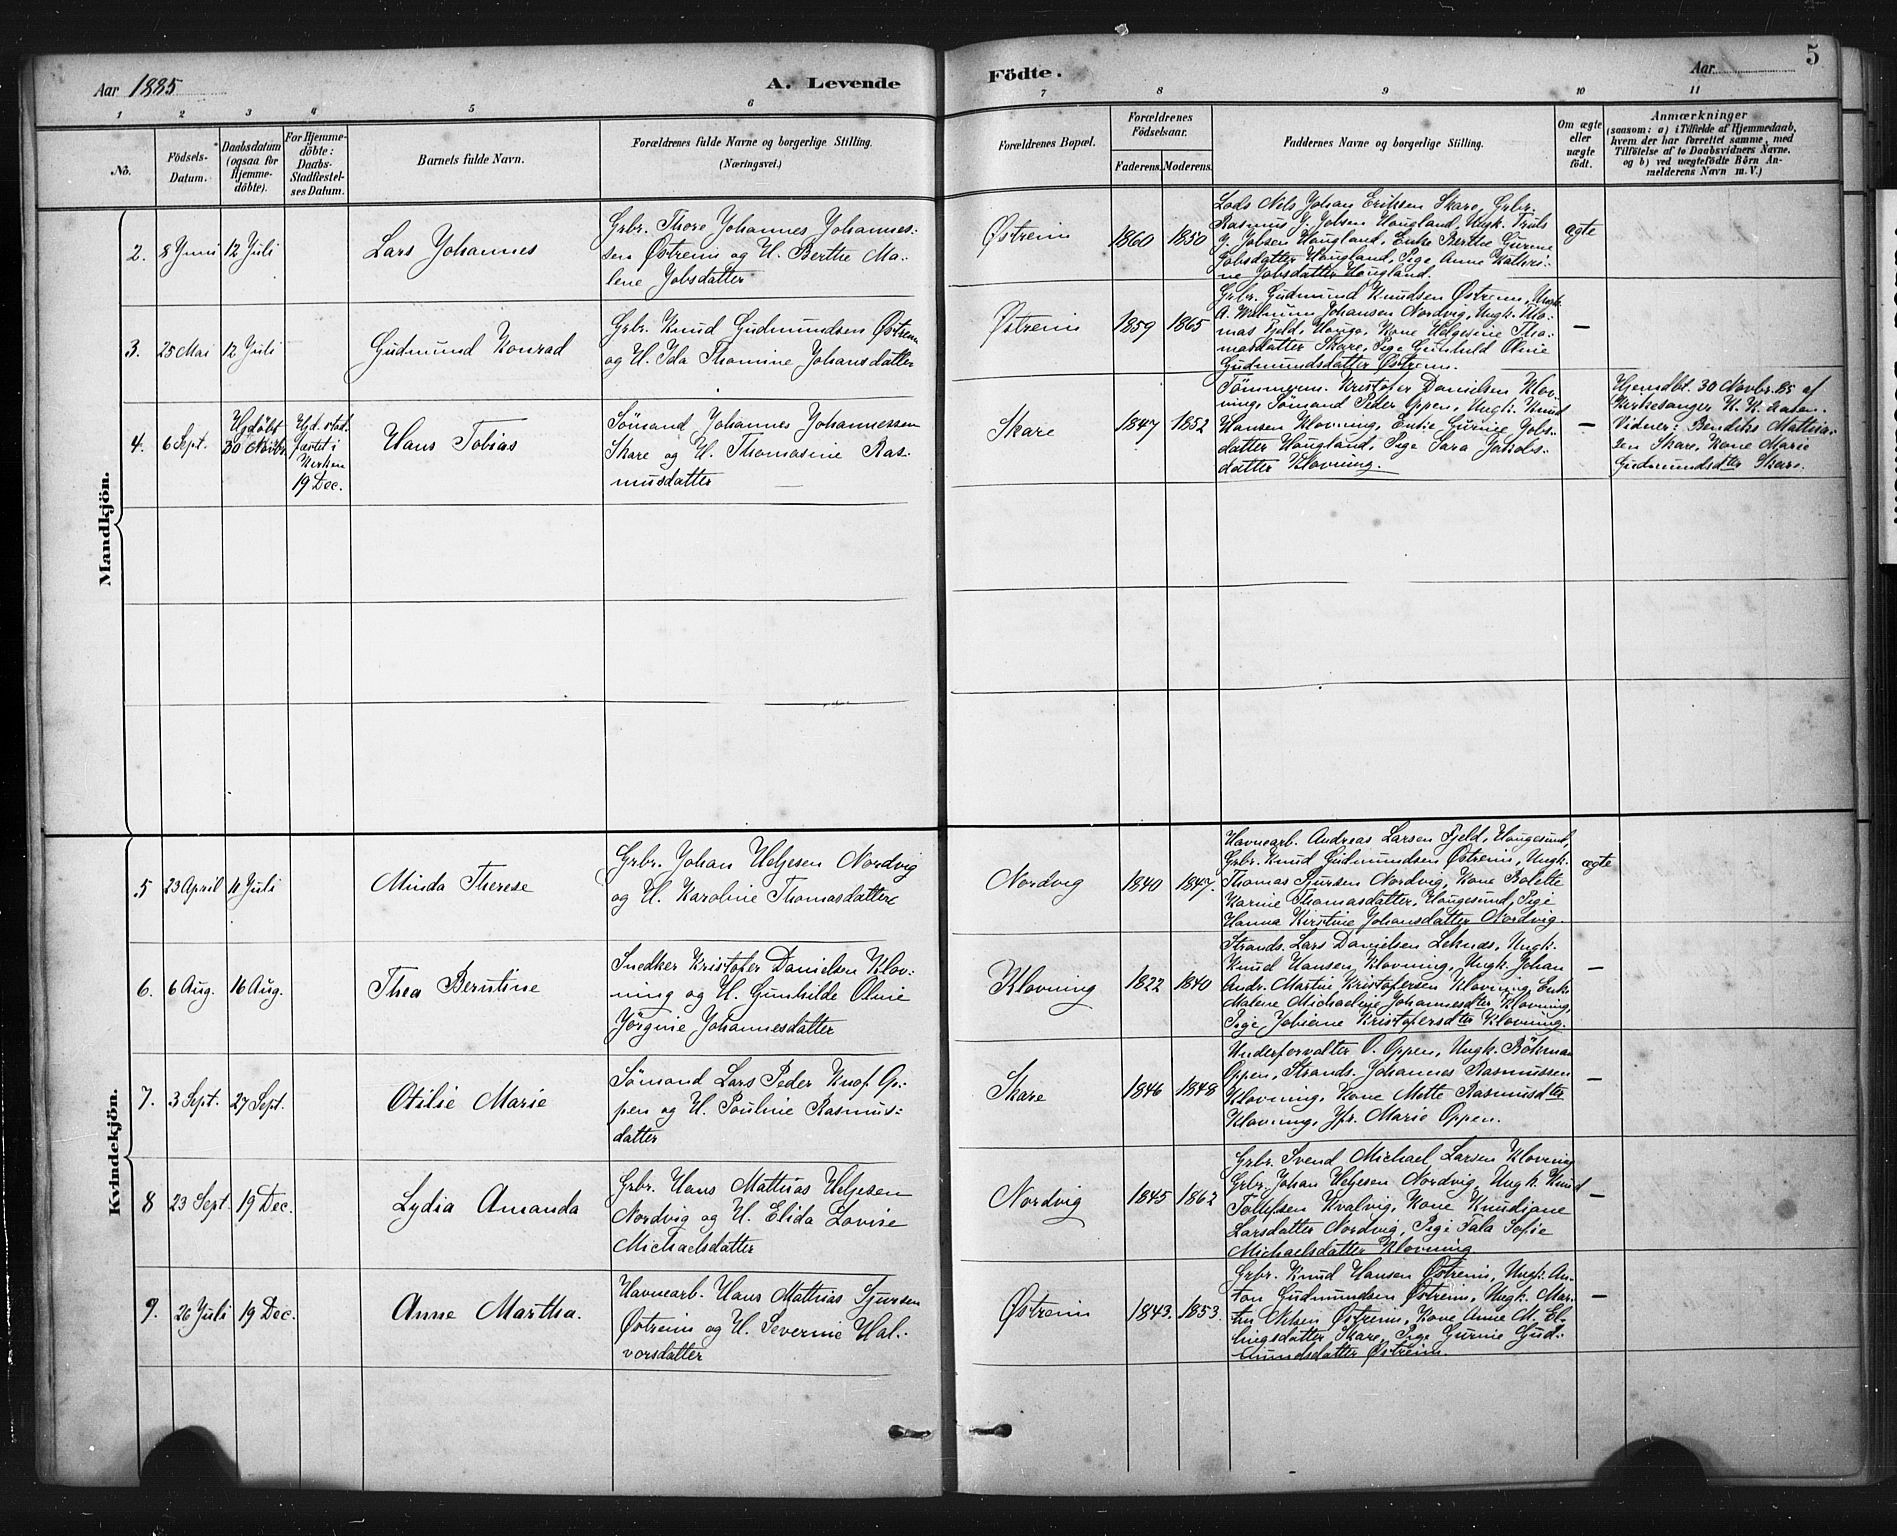 Aar 1885
A. Levende
Födte.
Aar
5
1 2 3 4 5 6 7 8 9 10 11
No.
Födsels-
Datum.
Daabsdatum
(ogsaa for
Hjemme-
döbte).
For Hjemme-
döbte:
Daabs-
Stadfæstel-
ses Datum.
Barnets fulde Navn.
Forældrenes fulde Navne og borgerlige Stilling.
(Næringsvei.)
Forældrenes Bopæl.
Forældrenes
Födselsaar.
Faderens.
Moderens.
Faddernes Navne og borgerlige Stilling.
Om ægte
eller
uægte
födt.
Anmærkninger
(saasom: a) i Tilfælde af Hjemmedaab,
hvem der har forrettet samme, med
Tilföielse af to Daabsvidners Navne.
og b) ved uægtefödte Börn An-
melderens Navn m. V.)
Mandkjön.
2. 8 Juni 12 Juli
Lars Johannes
Grbr. Thore Johannes Johannes-
sen Østrem og H. Berthe Ma-
lene Jobsdatter
Østrem
1860 1850
Lods Nils Johan Eriksen Skare, Grbr.
Rasmus J. Jobsen Hougland, Ungk. Truls
J. Jobsen Hougland, Enke Berthe Gurine
Jobsdatter Hougland, Pige Anne Kathri-
ne Jobsdatter Hougland.
ægte
3. 25 Mai 12 Juli
Gudmund Konrad
Grbr. Knud Gudmundsen Østrem
og H. Ida Thomine Johansdatter
Østrem
1859 1865
Grbr. Gudmund Knudsen Østrem, Ungk.
A. Johansen Nordvig, Ungk. Tho-
mas Fjeld, Kone Helgesine Tho-
masdatter Skare, Pige Gunhild Oline
Gudmundsdatter Østrem.
—
4. 6 Sept.
Hjdöbt
30 Novbr.
Hjd. stad-
fæstet i
Kirken
19 Dec.
Hans Tobias
Sømand Johannes Johannessen
Skare og H. Thomasine Ras-
musdatter
Skare
1847 1852
Tömmerm. Kristofer Danielsen Klov-
ning, Sømand Peder Oppen, Ungk. Knud
Hansen Klovning, Enke Gurine Jobs-
datter Hougland, Pige Sara Jakobs-
datter Klovning.
—
Hjemdbt. 30 Novbr. 85 af
Kirkesanger K. K. Aasen.
Vidner: Bendiks Mathia-
sen Skare, Kone Marie
Gudmundsdter Skare.
Kvindekjön.
5 23 April 11 Juli
Minda Therese
Grbr. Johan Heljesen Nordvig
og H. Karoline Thomasdatter
Nordvig
1840 1847.
Havnearb. Andreas Larsen Fjeld, Hougesund,
Grbr. Knud Gudmundsen Østrem, Ungk.
Thomas Sjursen Nordvig, Kone Bolette
Karine Thomasdatter, Hougesund, Pige
Hanna Kirstine Johansdatter Nordvig.
ægte
6. 6 Aug. 16 Aug.
Thea Berntine
Snedker Kristofer Danielsen Klov-
ning og H. Gunhilde Oline
Jörgine Johannesdatter
Klovning
1822 1840
Strands. Lars Danielsen Leknes, Ungk.
Knud Hansen Klovning, Ungk. Johan
Andr. Martin Kristofersen Klovning, Enke
Malene Michaeline Johannesdter Klovning,
Pige Jobiane Kristofersdter Klovning.
—
7. 3 Sept. 27 Sept.
Otilie Marie
Sømand Lars Peder Knof Op-
pen og H. Pouline Rasmus-
datter
Skare
1846 1848
Underforvalter O. Oppen, Ungk. Böckman
Oppen, Strands. Johannes Rasmussen
Klovning, Kone Mette Rasmusdter
Klovning, Jfr. Marie Oppen.
—
8 23 Sept. 19 Dec.
Lydia Amanda
Grbr. Hans Mathias Heljesen
Nordvig og H. Elida Lovise
Michaelsdatter
Nordvig
1845 1862
Grbr. Svend Michael Larsen Klovning
Grbr. Johan Heljesen Nordvig, Ungk. Knud
Tollefsen Kvalvig, Kone Knudiane
Larsdatter Nordvig, Pige Tala Sofie
Michaelsdatter Klovning
—
9. 26 Juli 19 Dec.
Anne Martha.
Havnearb. Hans Mathias Sjursen
Østrem og H. Severine Hal-
vorsdatter
Østrem
1843. 1853.
Grbr. Knud Hansen Østrem, Ungk. An-
ton Gudmundsen Østrem, Ungk. Mar-
tin Nilsen Østrem, Kone Anne M. El-
lingsdatter Skare, Pige Gurine Gud-
mundsdatter Østrem.
—